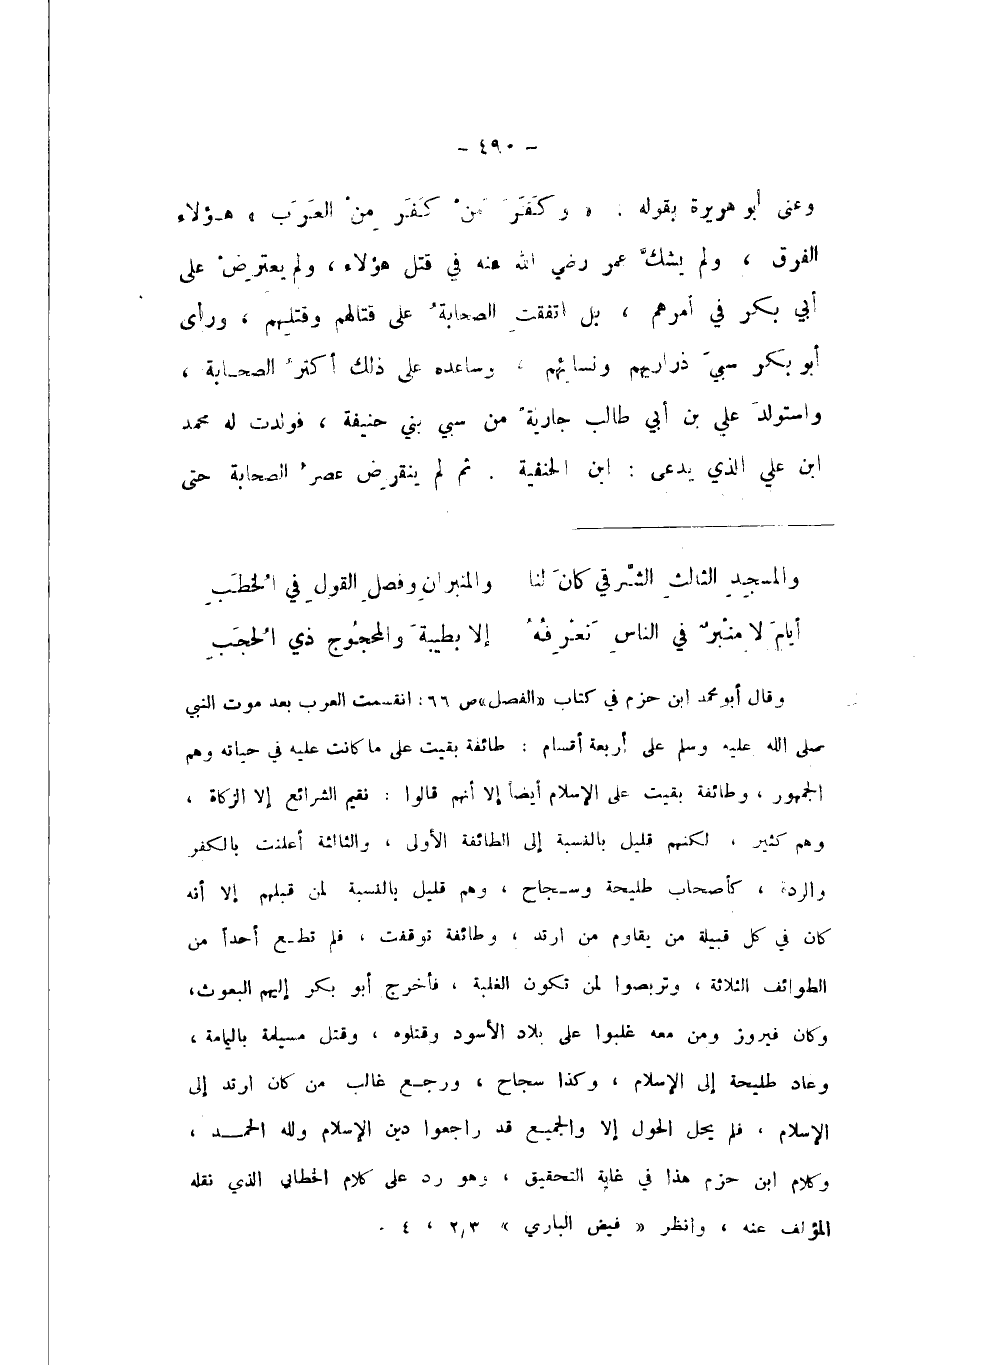 - ٤٩٠ -
وعنى أبو هريرة بقوله : « وكَفَرَ مَنْ كَفَرَ مِنْ العَرَب » هـؤلاء
الفرق ، ولم يشكَّ عمر رضي الله عنه في قتل هؤلاء ، ولم يعترِضْ على
أبي بكر في أمرهم ، بل اتفقتِ الصحابةُ على قتالهم وقتلهم ، ورأى
أبو بكر سبيَ ذراريهم ونسائهم ، وساعده على ذلك أكثرُ الصحـابة ،
واستولدَ علي بن أبي طالب جاريةً من سبي بني حنيفة ، فولدت له محمد
ابن علي الذي يدعى : ابن الحنفية . ثم لم ينقرِض عصرُ الصحابة حتى
والمسجِدِ الثالثِ الشَّرقي كانَ لنا والمنبرانِ وفصلِ القولِ في الخُطَبِ
أيامَ لا منْبرٌ في الناسِ نَعْرِفُهُ إلا بطيبةَ والمحجُوجِ ذي الحُجَبِ
وقال أبو محمد ابن حزم في كتاب «الفصل» ص ٦٦ : انقسمت العرب بعد موت النبي
صلى الله عليه وسلم على أربعة أقسام : طائفة بقيت على ما كانت عليه في حياته وهم
الجمهور ، وطائفة بقيت على الإسلام أيضاً إلا أنهم قالوا : نقيم الشرائع إلا الزكاة ،
وهم كثير ، لكنهم قليل بالنسبة إلى الطائفة الأولى ، والثالثة أعلنت بالكفر
والردة ، كأصحاب طليحة وسـجاح ، وهم قليل بالنسبة لمن قبلهم إلا أنه
كان في كل قبيلة من يقاوم من ارتد ، وطائفة توقفت ، فلم تطـع أحداً من
الطوائف الثلاثة ، وتربصوا لمن تكون الغلبة ، فأخرج أبو بكر إليهم البعوث،
وكان فيروز ومن معه غلبوا على بلاد الأسود وقتلوه ، وقتل مسيلمة باليمامة ،
وعاد طليحة إلى الإسلام ، وكذا سجاح ، ورجـع غالب من كان ارتد إلى
الإسلام ، فلم يحل الحول إلا والجميـع قد راجعوا دين الإسلام ولله الحمـــد ،
وكلام ابن حزم هذا في غاية التحقيق ، وهو رد على كلام الخطابي الذي نقله
المؤلف عنه ، وانظر « فيض الباري » ٢,٣ ، ٤ .